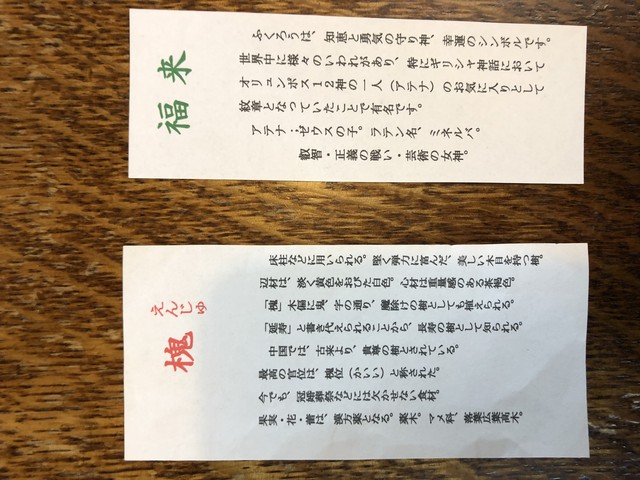 福来
ふくろうは、知恵と勇気の守り神、幸運のシンボルです。
世界中に様々のいわれがあり、特にギリシャ神話において
オリュンポス１２神の一人（アテナ）のお気に入りとして
紋章となっていたことで有名です。
アテナ：ゼウスの子。ラテン名、ミネルバ。
叡智・正義の戦い・芸術の女神。
えんじゅ
槐
床柱などに用いられる。堅く弾力に富んだ、美しい木目を持つ樹。
辺材は、淡く黄色をおびた白色。心材は重量感のある茶褐色。
「槐」木偏に鬼、字の通り、魔除けの樹としても植えられる。
「延寿」と書き代えられることから、長寿の樹として知られる。
中国では、古来より、貴尊の樹とされている。
最高の官位は、槐位（かいい）と称された。
今でも、冠婚葬祭などには欠かせない食材。
果実・花・蕾は、漢方薬となる。薬木。マメ科、落葉広葉高木。